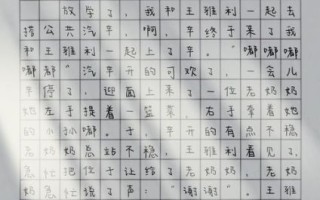 放学了，我和王雅利一起去
搭公共汽车，啊，车终于来了我
和王雅利一起上了车。"嘟嘟
嘟嘟"汽车开的可欢了，一会儿
车停了，迎面上来了一位老奶奶
她左手提着一篮菜，右手牵着她
的小孙嘟。于，车开的有点不稳
老奶奶总站不稳，王雅利看见了，
急忙把位子让给了老奶奶，老奶
奶急忙说了声："谢谢"。王雅